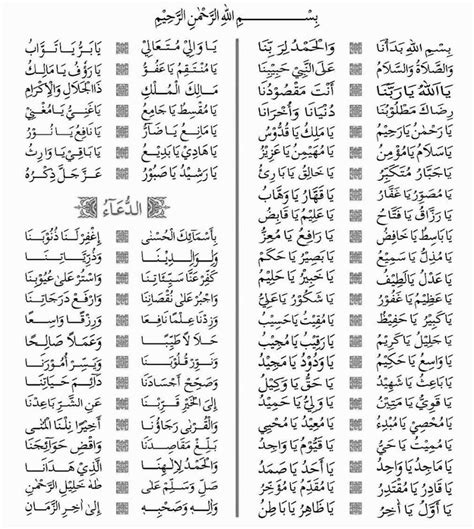 بِسْمِ اللهِ الرَّحْمٰنِ الرَّحِيْمِ
بِسْمِ اللهِ بَدَأْنَا وَالْحَمْدُ لِرَبِّنَا
وَالصَّلَاةُ وَالسَّلَامُ عَلَى النَّبِيِّ حَبِيْبِنَا
يَا اَللهُ يَا رَبَّنَا أَنْتَ مَقْصُوْدُنَا
رِضَاكَ مَطْلُوْبُنَا دُنْيَانَا وَأُخْرَانَا
يَا رَحْمٰنُ يَا رَحِيْمُ يَا مَلِكُ يَا قُدُّوْسُ
يَا سَلَامُ يَا مُؤْمِنُ يَا مُهَيْمِنُ يَا عَزِيْزُ
يَا جَبَّارُ يَا مُتَكَبِّرُ يَا خَالِقُ يَا بَارِئُ
يَا مُصَوِّرُ يَا غَفَّارُ يَا قَهَّارُ يَا وَهَّابُ
يَا رَزَّاقُ يَا فَتَّاحُ يَا عَلِيْمُ يَا قَابِضُ
يَا بَاسِطُ يَا خَافِضُ يَا رَافِعُ يَا مُعِزُّ
يَا مُذِلُّ يَا سَمِيْعُ يَا بَصِيْرُ يَا حَكَمُ
يَا عَدْلُ يَا لَطِيْفُ يَا خَبِيْرُ يَا حَلِيْمُ
يَا عَظِيْمُ يَا غَفُوْرُ يَا شَكُوْرُ يَا عَلِيُّ
يَا كَبِيْرُ يَا حَفِيْظُ يَا مُقِيْتُ يَا حَسِيْبُ
يَا رَقِيْبُ يَا مُجِيْبُ
يَا وَاسِعُ يَا حَكِيْمُ يَا وَدُوْدُ يَا مَجِيْدُ
يَا بَاعِثُ يَا شَهِيْدُ يَا حَقُّ يَا وَكِيْلُ
يَا قَوِيُّ يَا مَتِيْنُ يَا وَلِيُّ يَا حَمِيْدُ
يَا مُحْصِيْ يَا مُبْدِئُ يَا مُعِيْدُ يَا مُحْيِيْ
يَا مُمِيْتُ يَا حَيُّ يَا قَيُّوْمُ يَا وَاجِدُ
يَا مَاجِدُ يَا وَاحِدُ يَا أَحَدُ يَا صَمَدُ
يَا قَادِرُ يَا مُقْتَدِرُ يَا مُقَدِّمُ يَا مُؤَخِّرُ
يَا أَوَّلُ يَا آخِرُ يَا ظَاهِرُ يَا بَاطِنُ
يَا وَالِيْ يَا مُتَعَالِيْ يَا بَرُّ يَا تَوَّابُ
يَا مُنْتَقِمُ يَا عَفُوُّ يَا رَؤُفُ يَا مَالِكُ
مَالِكَ الْمُلْكِ ذَا الْجَلَالِ وَالْإِكْرَامِ
يَا مُقْسِطُ يَا جَامِعُ يَا غَنِيُّ يَا مُغْنِيْ
يَا مَانِعُ يَا ضَآرُّ يَا نَافِعُ يَا نُوْرُ
يَا هَادِيْ يَا بَدِيْعُ يَا بَاقِيْ يَا وَارِثُ
يَا رَشِيْدُ يَا صَبُوْرُ عَزَّ جَلَّ ذِكْرُهُ
الدُّعَآءُ
بِأَسْمَائِكَ الْحُسْنٰى اِغْفِرْ لَنَا ذُنُوْبَنَا
وَلِوَالِدِيْنَا وَذُرِّيَّاتِنَا
كَفِّرْ عَنَّا سَيِّئَاتِنَا وَاسْتُرْ عَلٰى عُيُوْبِنَا
وَاجْبُرْ عَلٰى نُقْصَانِنَا وَارْفَعْ دَرَجَاتِنَا
وَزِدْنَا عِلْمًا نَافِعًا وَرِزْقًا وَاسِعًا
حَلَالًا طَيِّبًا وَعَمَلًا صَالِحًا
وَنَوِّرْ قُلُوْبَنَا وَيَسِّرْ أُمُوْرَنَا
وَصَحِّحْ أَجْسَادَنَا دَائِمَ حَيَاتِنَا
إِلَى الْخَيْرِ قَرِّبْنَا عَنِ الشَّرِّ بَاعِدْنَا
وَالْقُرْبٰى رَجَاؤُنَا أَخِيْرًا نِلْنَا الْمُنٰى
بَلِّغْ مَقَاصِدَنَا وَاقْضِ حَوَائِجَنَا
وَالْحَمْدُ لِإِلٰهِنَا الَّذِيْ هَدَانَا
صَلِّ وَسَلِّمْ عَلٰى طٰهَ خَلِيْلِ الرَّحْمٰنِ
وَاٰلِهِ وَصَحْبِهِ إِلٰى اٰخِرِ الزَّمَانِ